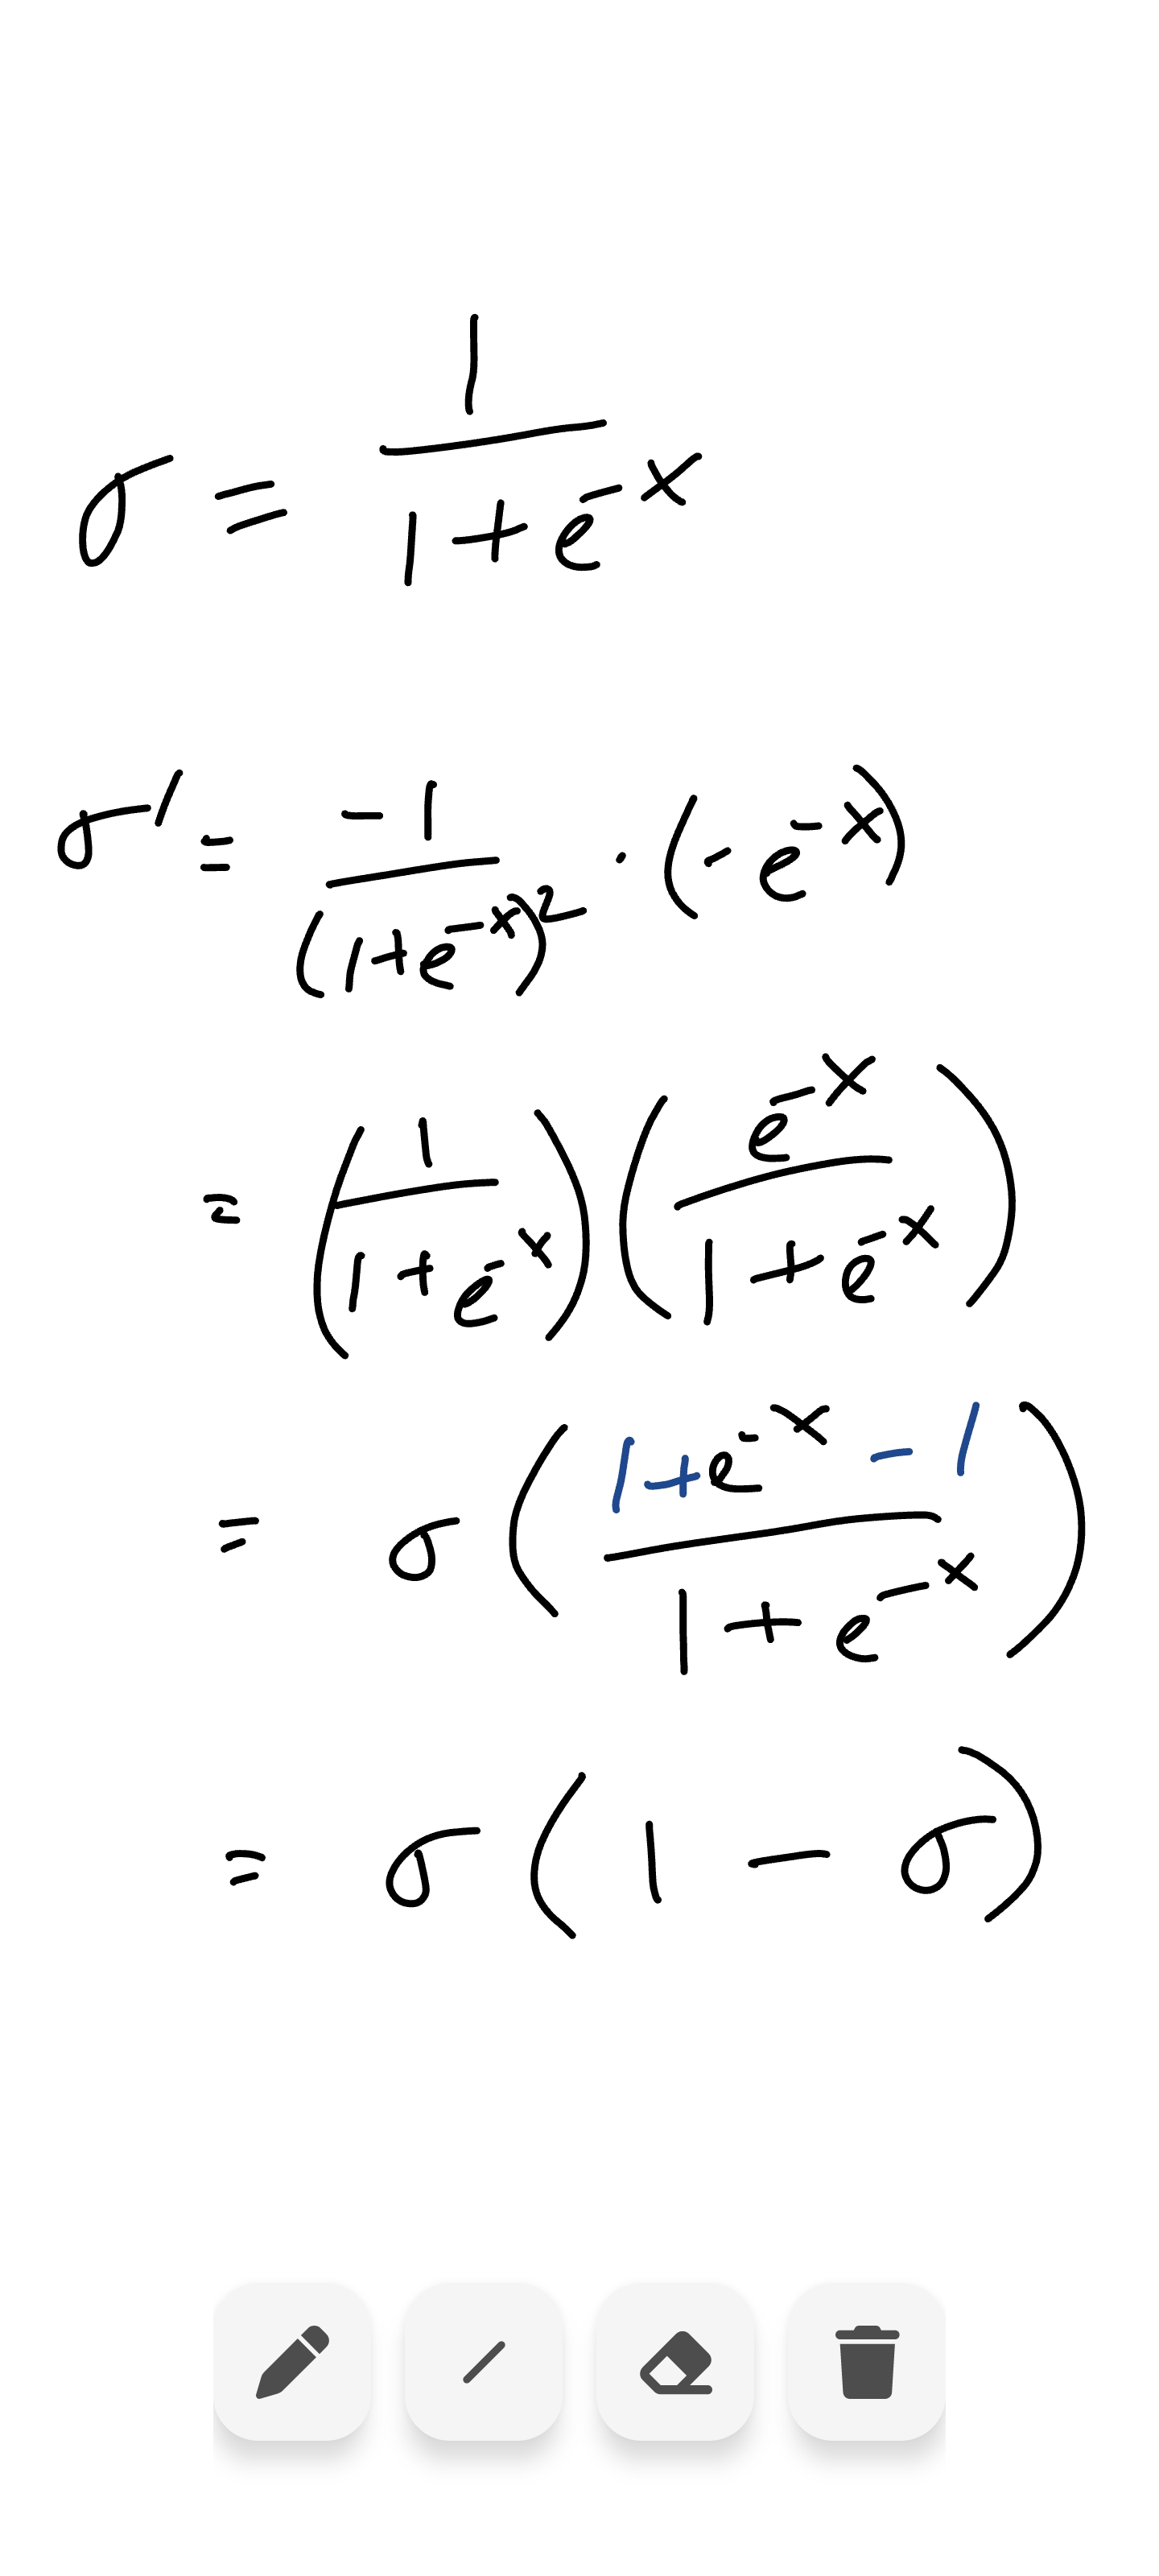 σ = 1 / (1 + e^-x)
σ' = -1 / (1+e^-x)^2 · (-e^-x)
= (1 / (1 + e^-x)) (e^-x / (1 + e^-x))
= σ ((1+e^-x - 1) / (1 + e^-x))
= σ (1 - σ)